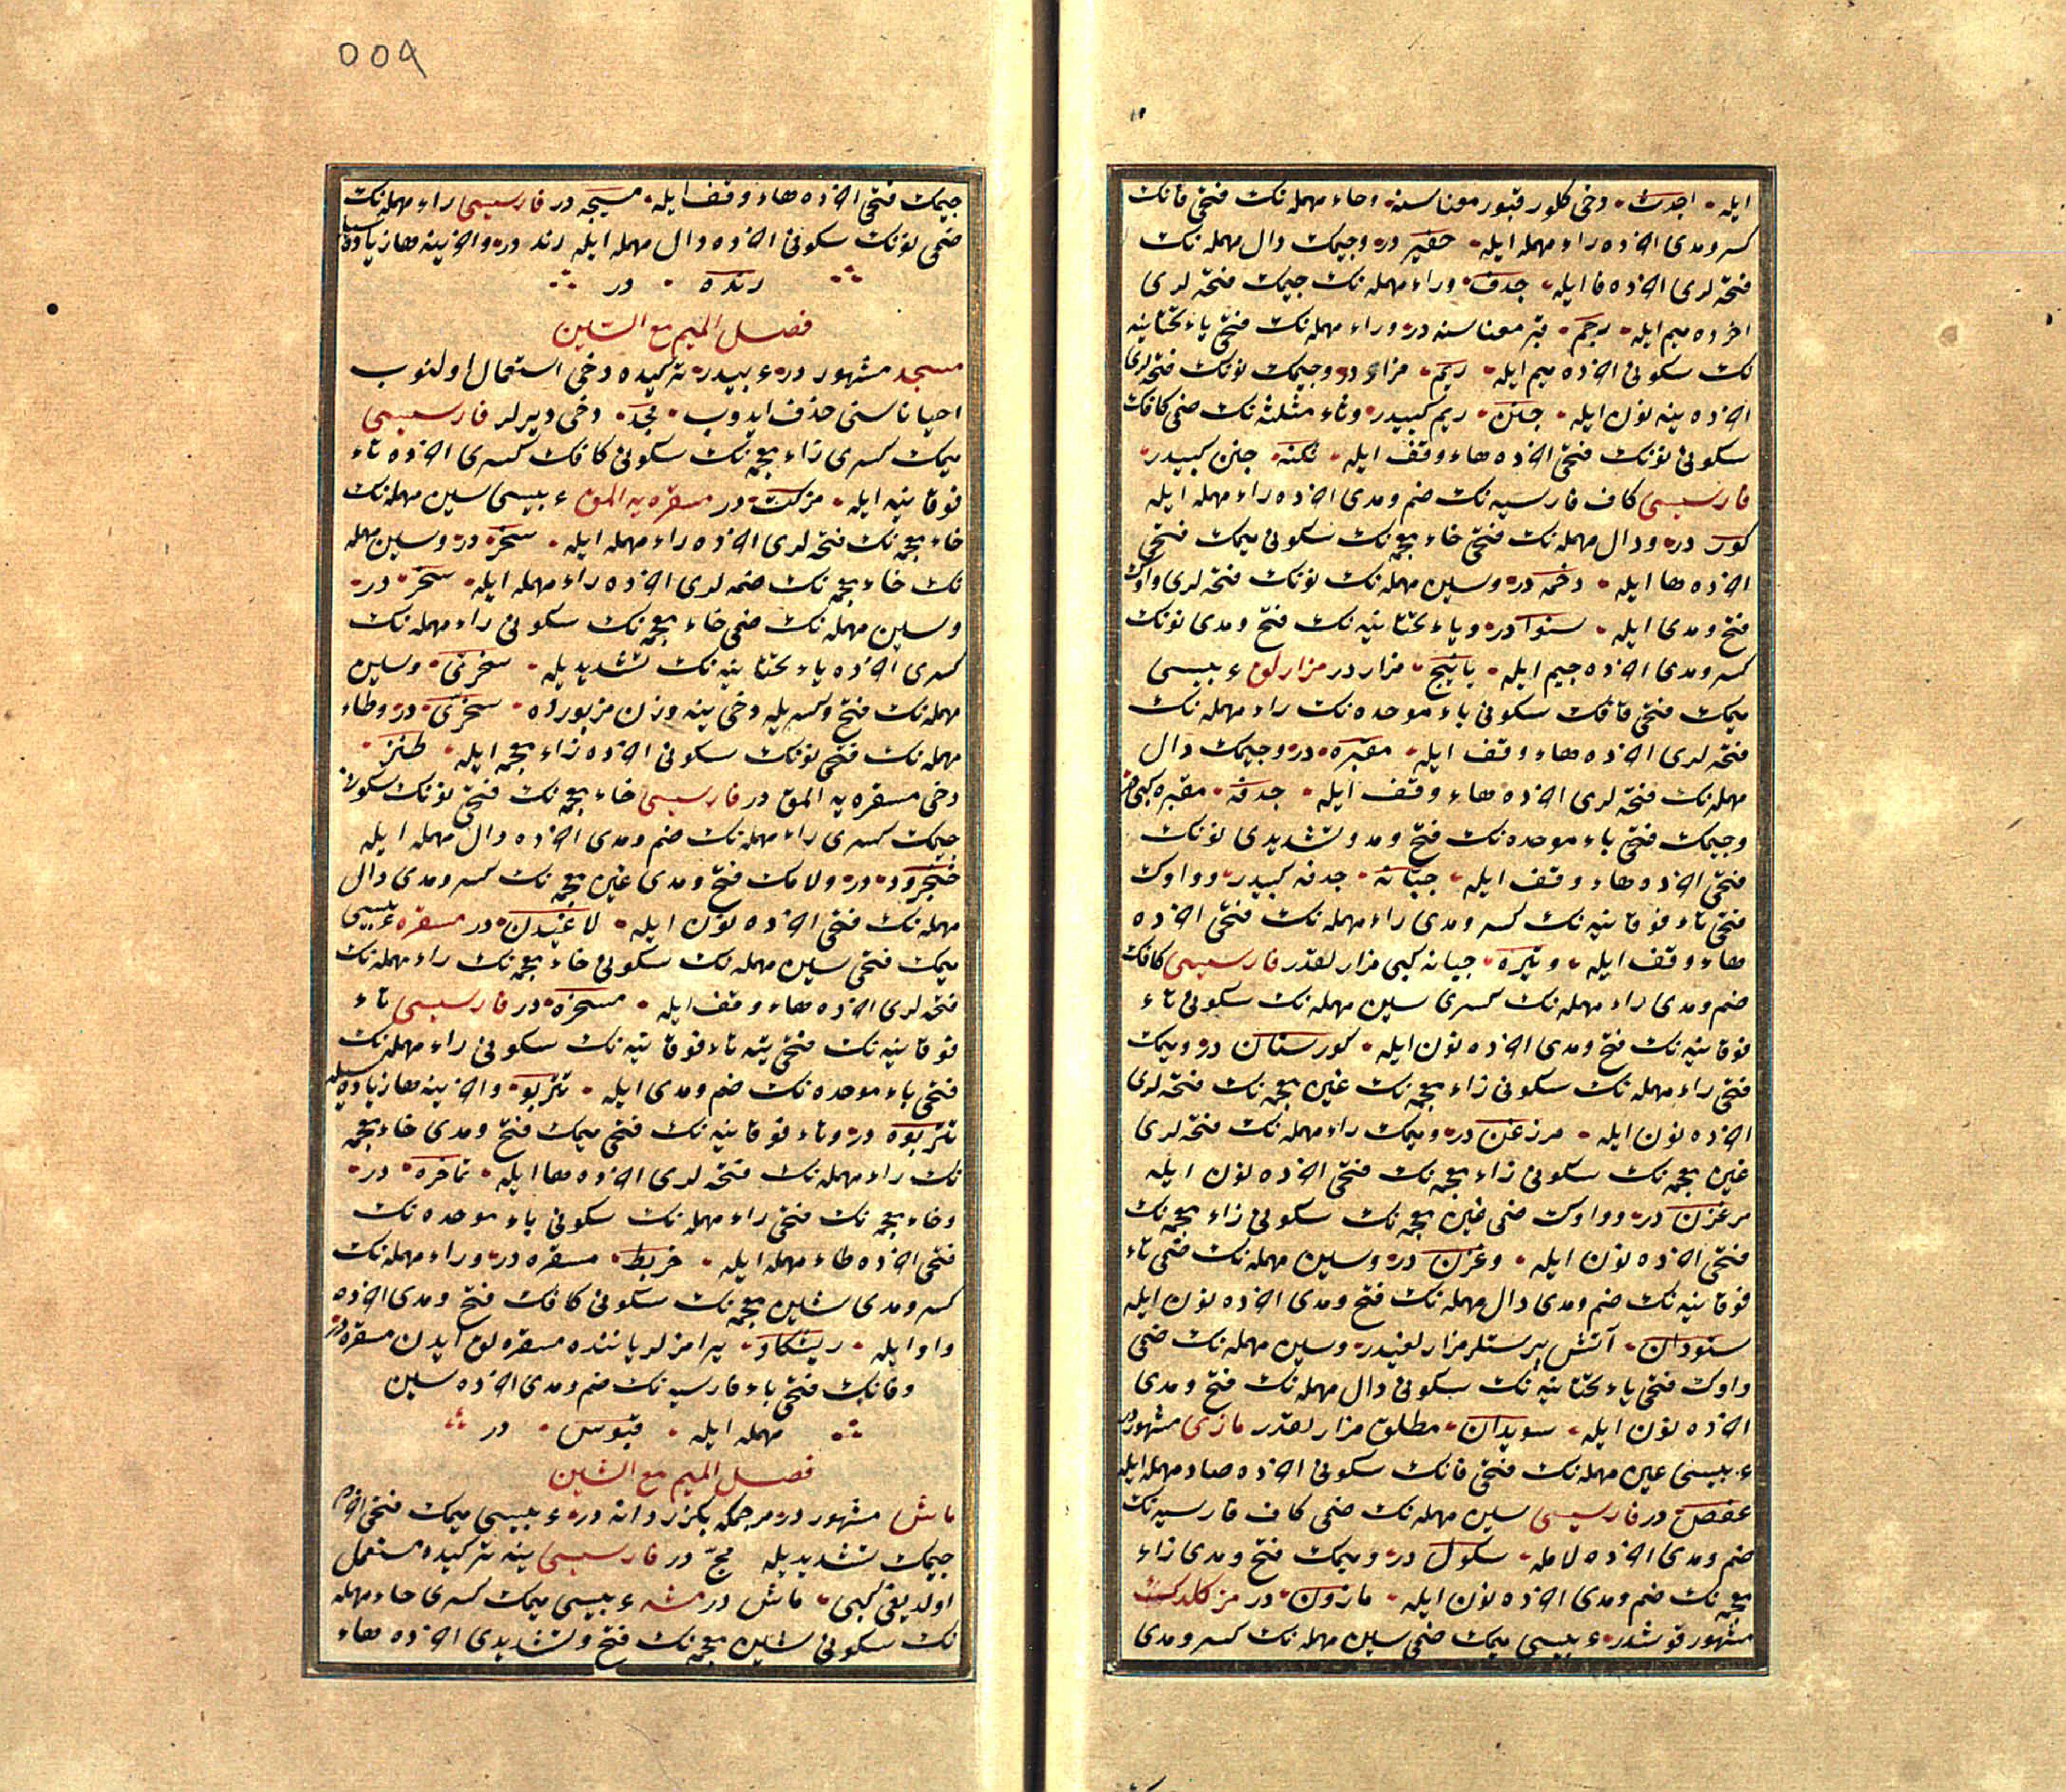 ایله اجدث دخی کلور قبور معناسنه وحاء مهمله نک فتحی قافک
کسر ومدی اخرده راء مهمله ایله حفیر در وجیمک دال مهمله نک
فتحه لری اخرده فا ایله جدف وراء مهمله نک جیمک فتحه لری
اخرده میم ایله رجم قبر معناسنه در وراء مهمله نک فتحی یاء تحتانیه
نک سکونی اخرده میم ایله ریم مزار در وجیمک نونک فتحه لری
اخرده ینه نون ایله جنن ریم کبیدر وثاء مثلثه نک ضمی کافک
سکونی نونک فتحی اخرده هاء وقف ایله ثکنه جنن کبیدر
فارسیسی کاف فارسیه نک ضم ومدی اخرده راء مهمله ایله
کور در ودال مهمله نک فتحی خاء معجمه نک سکونی میمک فتحی
اخرده ها ایله دخمه در وسین مهمله نک نونک فتحه لری واوک
فتح ومدی ایله سنوا در ویاء تحتانیه نک فتح ومدی نونک
کسر ومدی اخرده جیم ایله یانیج مزار در مزارلق عربیسی
میمک فتحی قافک سکونی باء موحده نک راء مهمله نک
فتحه لری اخرده هاء وقف ایله مقبره در وجیمک دال
مهمله نک فتحه لری اخرده هاء وقف ایله جدفه مقبره کبی در
وجیمک فتحی باء موحده نک فتح ومد وتشدیدی نونک
فتحی اخرده هاء وقف ایله جبانه جدفه کبیدر وواوک
فتحی تاء فوقانیه نک کسر ومدی راء مهمله نک فتحی اخرده
هاء وقف ایله وتیره جبانه کبی مزارلقدر فارسیسی کافک
ضم ومدی راء مهمله نک کسری سین مهمله نک سکونی تاء
فوقانیه نک فتح ومدی اخرده نون ایله کورستان در ومیمک
فتحی راء مهمله نک سکونی زاء معجمه نک غین معجمه نک فتحه لری
اخرده نون ایله مرزغن در ومیمک راء مهمله نک فتحه لری
غین معجمه نک سکونی زاء معجمه نک فتحی اخرده نون ایله
مرغزن در وواوک ضمی غین معجمه نک سکونی زاء معجمه نک
فتحی اخرده نون ایله وغزن در وسین مهمله نک ضمی تاء
فوقانیه نک ضم ومدی دال مهمله نک فتح ومدی اخرده نون ایله
ستودان آتش پرستلر مزارلغیدر وسین مهمله نک ضمی
واوک فتحی یاء تحتانیه نک سکونی دال مهمله نک فتح ومدی
اخرده نون ایله سویدان مطلق مزارلقدر مازی مشهوردر
عربیسی عین مهمله نک فتحی فانک سکونی اخرده صاد مهمله ایله
عفص در فارسیسی سین مهمله نک ضمی کاف فارسیه نک
ضم ومدی اخرده لامله سکول در ومیمک فتح ومدی زاء
معجمه نک ضم ومدی اخرده نون ایله مازون در مزکلدک
مشهور قوشدر عربیسی میمک ضمی سین مهمله نک کسر ومدی
٥٥٩
جیمک فتحی اخرده هاء وقف ایله مسیجه در فارسیسی راء مهمله نک
ضمی نونک سکونی اخرده دال مهمله ایله رند در واخرینه ها زیاده سیله
رنده در
فصل المیم مع السین
مسجد مشهور در عربیدر ترکیده دخی استعمال اولنوب
احیانا سنی حذف ایدوب مجد دخی دیرلر فارسیسی
میمک کسری زاء معجمه نک سکونی کافک کسری اخرده تاء
فوقانیه ایله مزکت در مسقره یه المق عربیسی سین مهمله نک
خاء معجمه نک فتحه لری اخرده راء مهمله ایله سخر در وسین مهمله
نک خاء معجمه نک ضمه لری اخرده راء مهمله ایله سخر در
وسین مهمله نک ضمی خاء معجمه نک سکونی راء مهمله نک
کسری اخرده یاء تحتانیه نک تشدیدیله سخری وسین
مهمله نک فتح وکسریله دخی ینه وزن مزبورده سخری در وطاء
مهمله نک فتحی نونک سکونی اخرده زاء معجمه ایله طنز
دخی مسقره یه المق در فارسیسی خاء معجمه نک فتحی نونک سکونی
جیمک کسری راء مهمله نک ضم ومدی اخرده دال مهمله ایله
خنجرود در ولامک فتح ومدی غین معجمه نک کسر ومدی دال
مهمله نک فتحی اخرده نون ایله لاغیدن در مسقره عربیسی
میمک فتحی سین مهمله نک سکونی خاء معجمه نک راء مهمله نک
فتحه لری اخرده هاء وقف ایله مسخره در فارسیسی تاء
فوقانیه نک فتحی ینه تاء فوقانیه نک سکونی راء مهمله نک
فتحی باء موحده نک ضم ومدی ایله تتربو واخرینه ها زیاده سیله
تتربوه در وتاء فوقانیه نک فتحی میمک فتح ومدی خاء معجمه
نک راء مهمله نک فتحه لری اخرده ها ایله تماخره در
وخاء معجمه نک فتحی راء مهمله نک سکونی باء موحده نک
فتحی اخرده طاء مهمله ایله خربط مسقره در وراء مهمله نک
کسر ومدی شین معجمه نک سکونی کافک فتح ومدی اخرده
واو ایله ریشکاو پرامزلر یاننده مسقره لق ایدن مسقره در
وقافک فتحی باء فارسیه نک ضم ومدی اخرده سین
مهمله ایله قپوس در
فصل المیم مع الشین
ماش مشهور در مرجمکه بکزر دانه در عربیسی میمک فتحی اخرده
جیمک تشدیدیله مج در فارسیسی ینه ترکیده مستعمل
اولدیغی کبی ماش در مشه عربیسی میمک کسری حاء مهمله
نک سکونی شین معجمه نک فتح وتشدیدی اخرده هاء